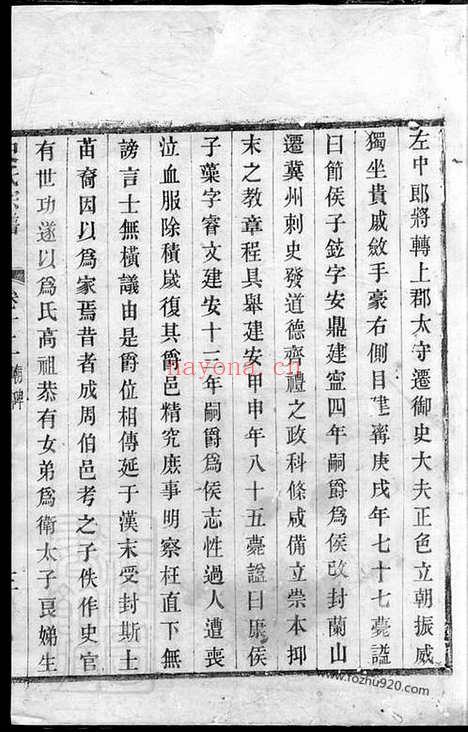 左中郎將轉上郡太守遷御史大夫正色立朝振威
獨坐貴戚斂手豪右側目建寧庚戌年七十七薨諡
曰節侯子鉉字安鼎建寧四年嗣爵爲侯改封蘭山
遷冀州刺史發道德齊禮之政科條咸備立崇本抑
末之教章程具舉建安甲申年八十五薨諡曰康侯
子藻字睿文建安十三年嗣爵爲侯志性過人遭喪
泣血服除積歲復其爵邑精究庶事明察枉直下無
謗言士無橫議由是爵位相傳延于漢末受封斯土
苗裔因以爲家焉昔者成周伯邑考之子佚作史官
有世功遂以爲氏高祖恭有女弟爲衛太子良娣生
氏宗譜
卷十二
廟碑
nayona.cn
www.fozhu920.com